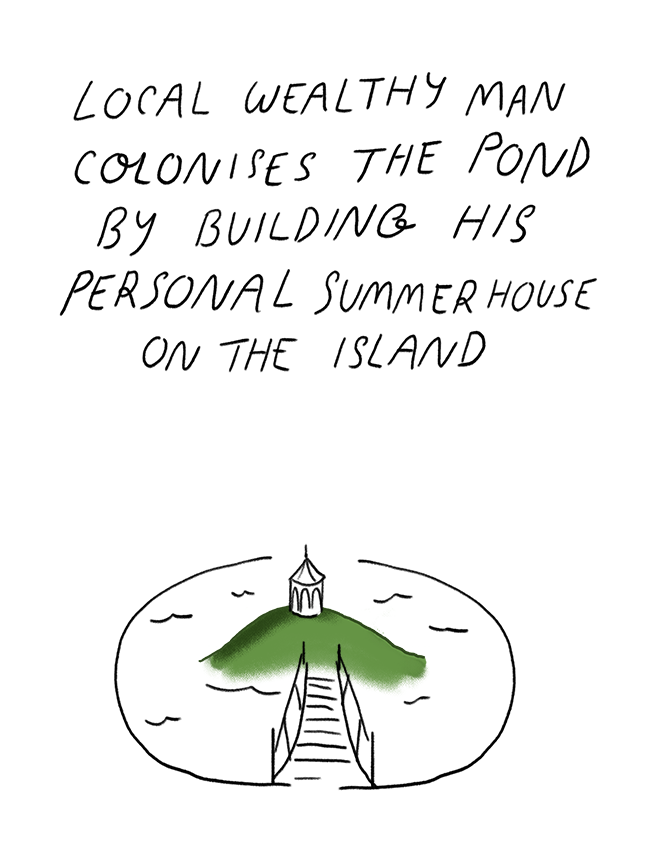 LOCAL WEALTHY MAN
COLONISES THE POND
BY BUILDING HIS
PERSONAL SUMMER HOUSE
ON THE ISLAND